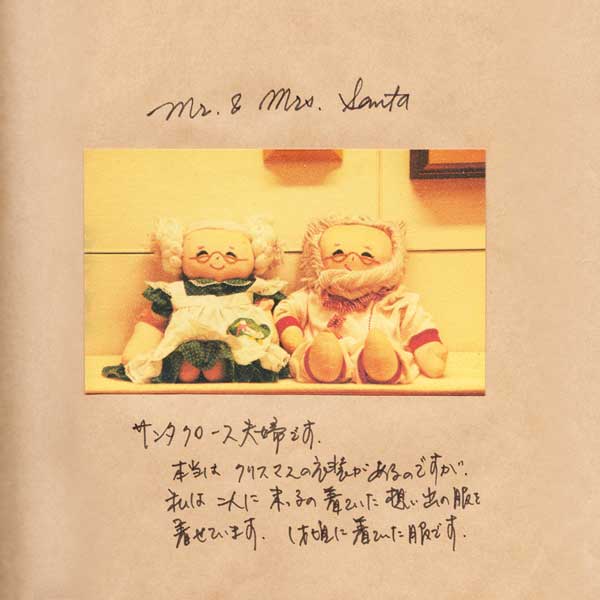 Mr. & Mrs. Santa
サンタクロース夫婦です.
本当は クリスマスの衣装があるのですが.
私は 二人に 末っ子の着ていた 想い出の服を
着せています. 1才頃に着ていた服です.